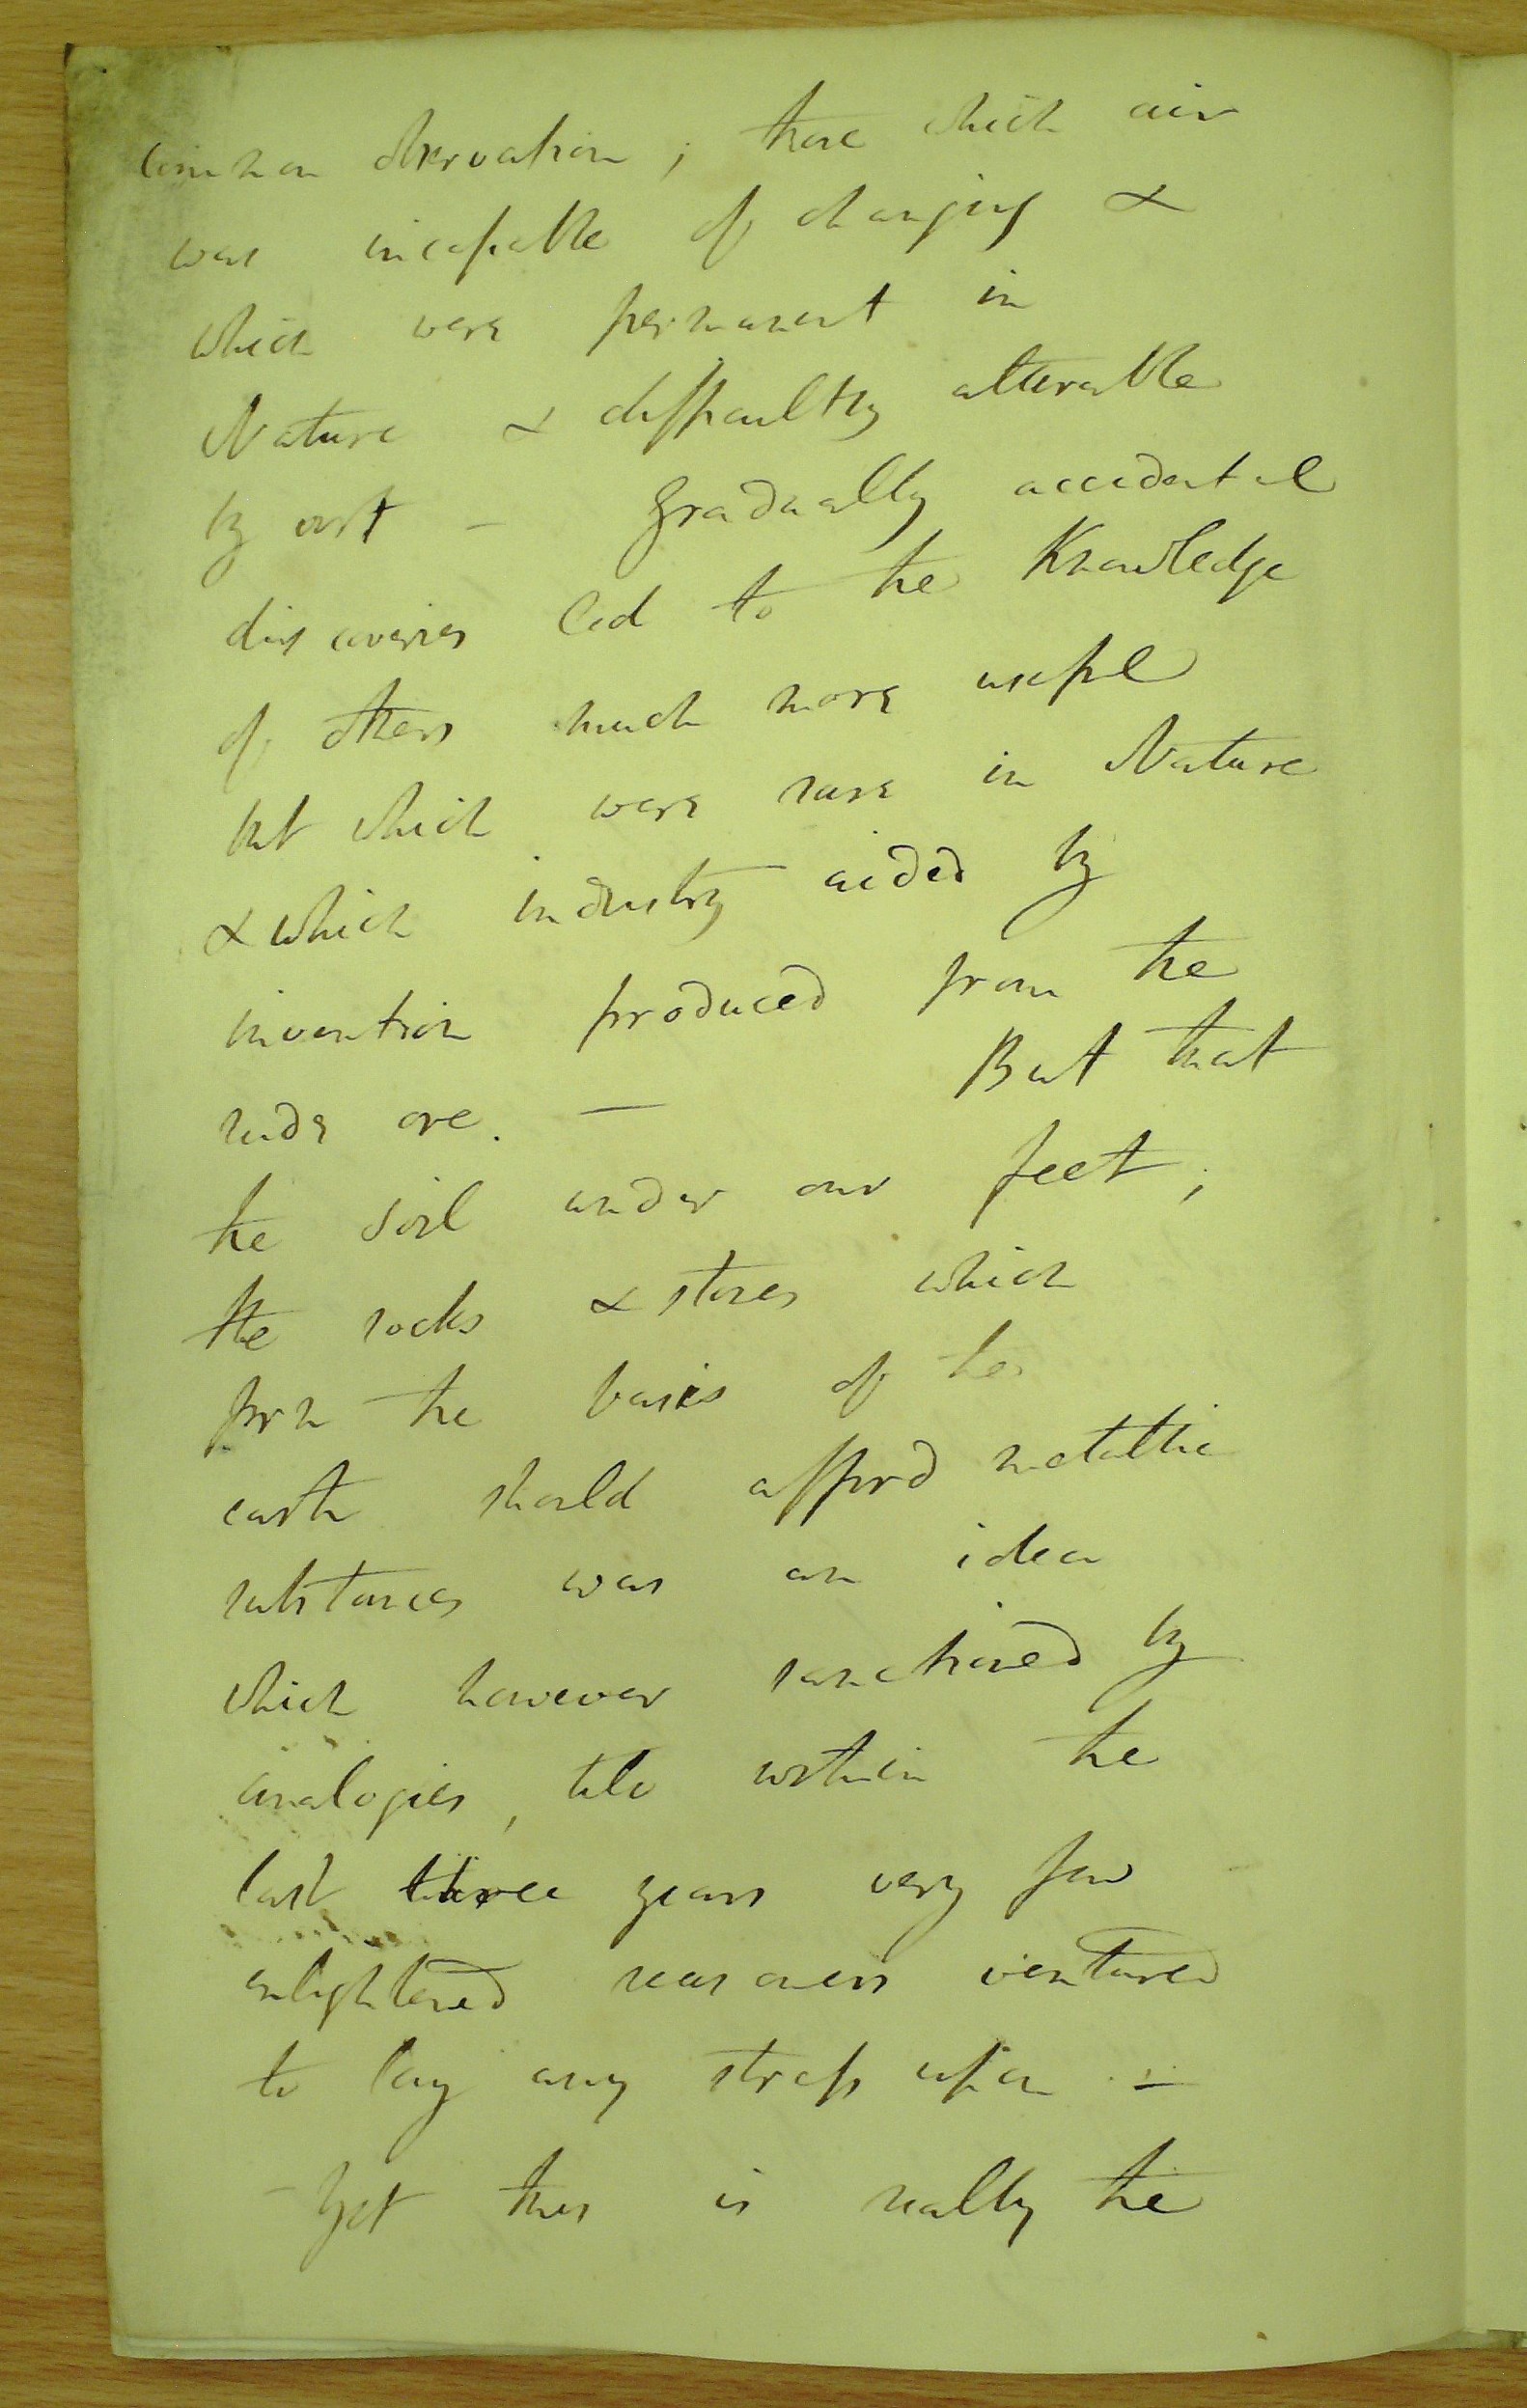 common observation; those which air
was incapable of changing &
which were permanent in
Nature & difficultly alterable
by art - Gradually accidental
discoveries led to the Knowledge
of others much more useful
but which were rare in Nature
& which industry aided by
invention produced from the
rude ore. — But that
the soil under our feet;
the rocks & stones which
form the basis of the
earth should afford metallic
substances was an idea
which however sanctioned by
analogies, till within the
last three years very few
enlightened reasoners ventured
to lay any stress upon. —
- Yet this is really the